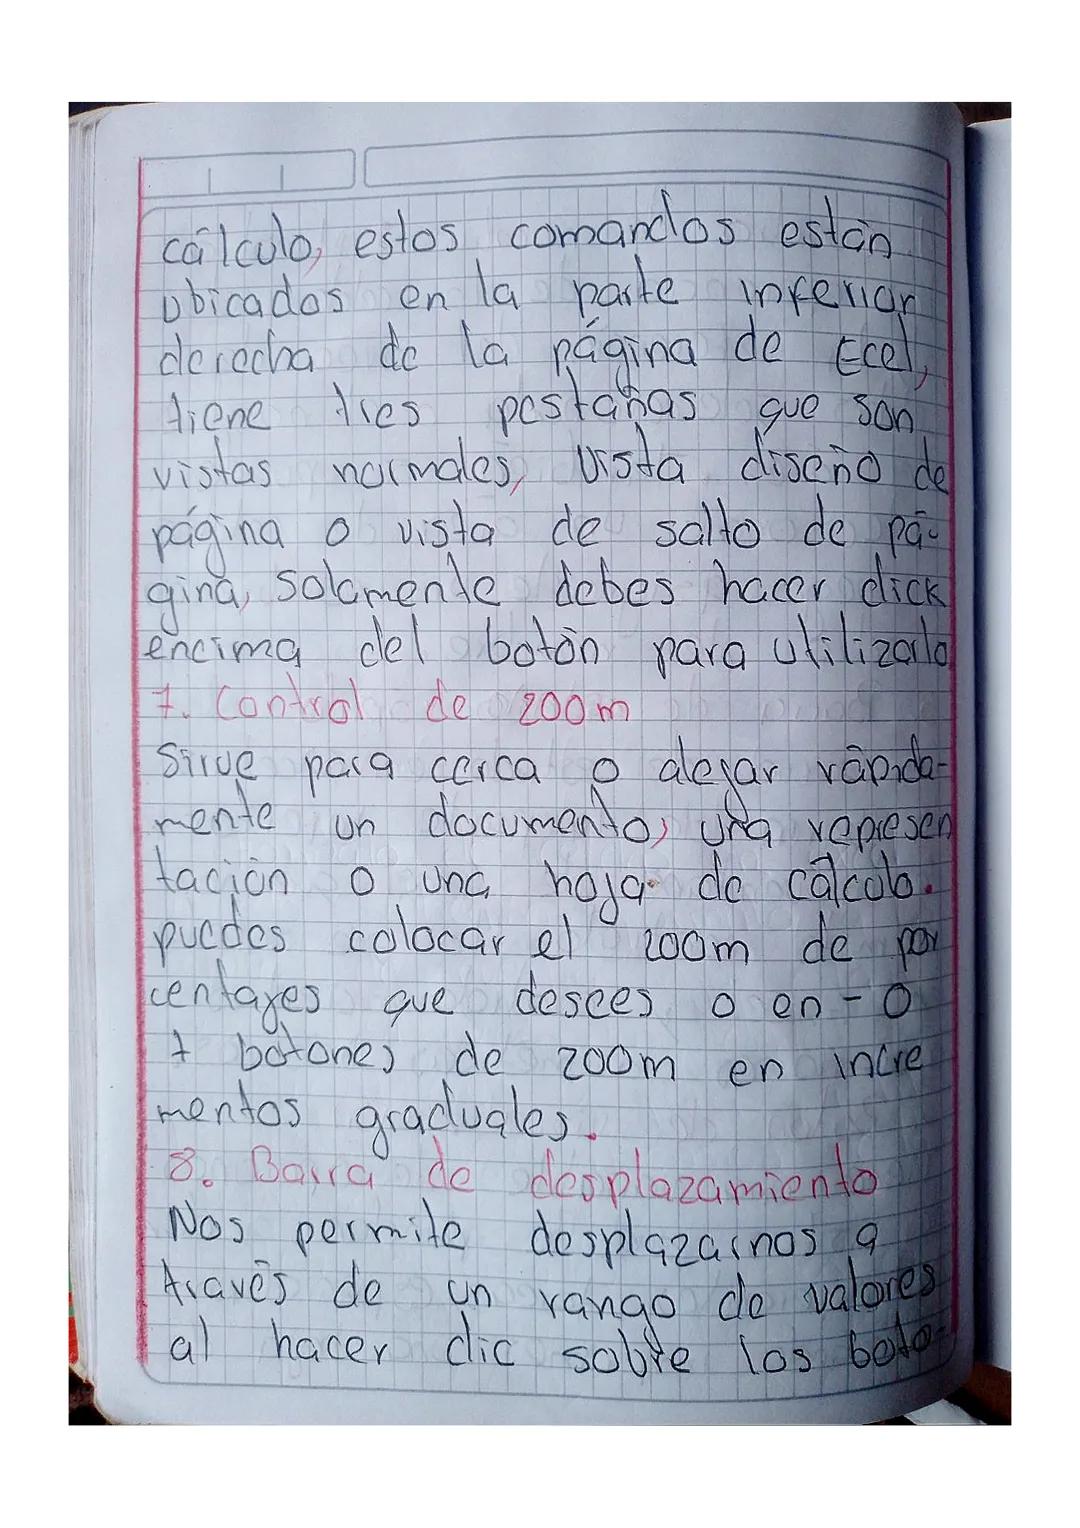 cálculo, estos comandos están
ubicados en la parte inferior
derecha de la página de Ecel,
tiene tres pestañas que son
vistas normales, vista diseño de
página o vista de salto de pá-
gina, solamente debes hacer click
encima del botón para utilizarlo
7. Control de zoom
Sirve para cerca o alejar rápida-
mente un documento, una represen
tación o una hoja de cálculo.
puedes colocar el zoom de por
centajes que desees o en - O
+ botones de zoom en incre
mentos graduales.
8. Barra de desplazamiento
Nos permite desplazarnos a
través de un rango de valores
al hacer clic sobre los boto-